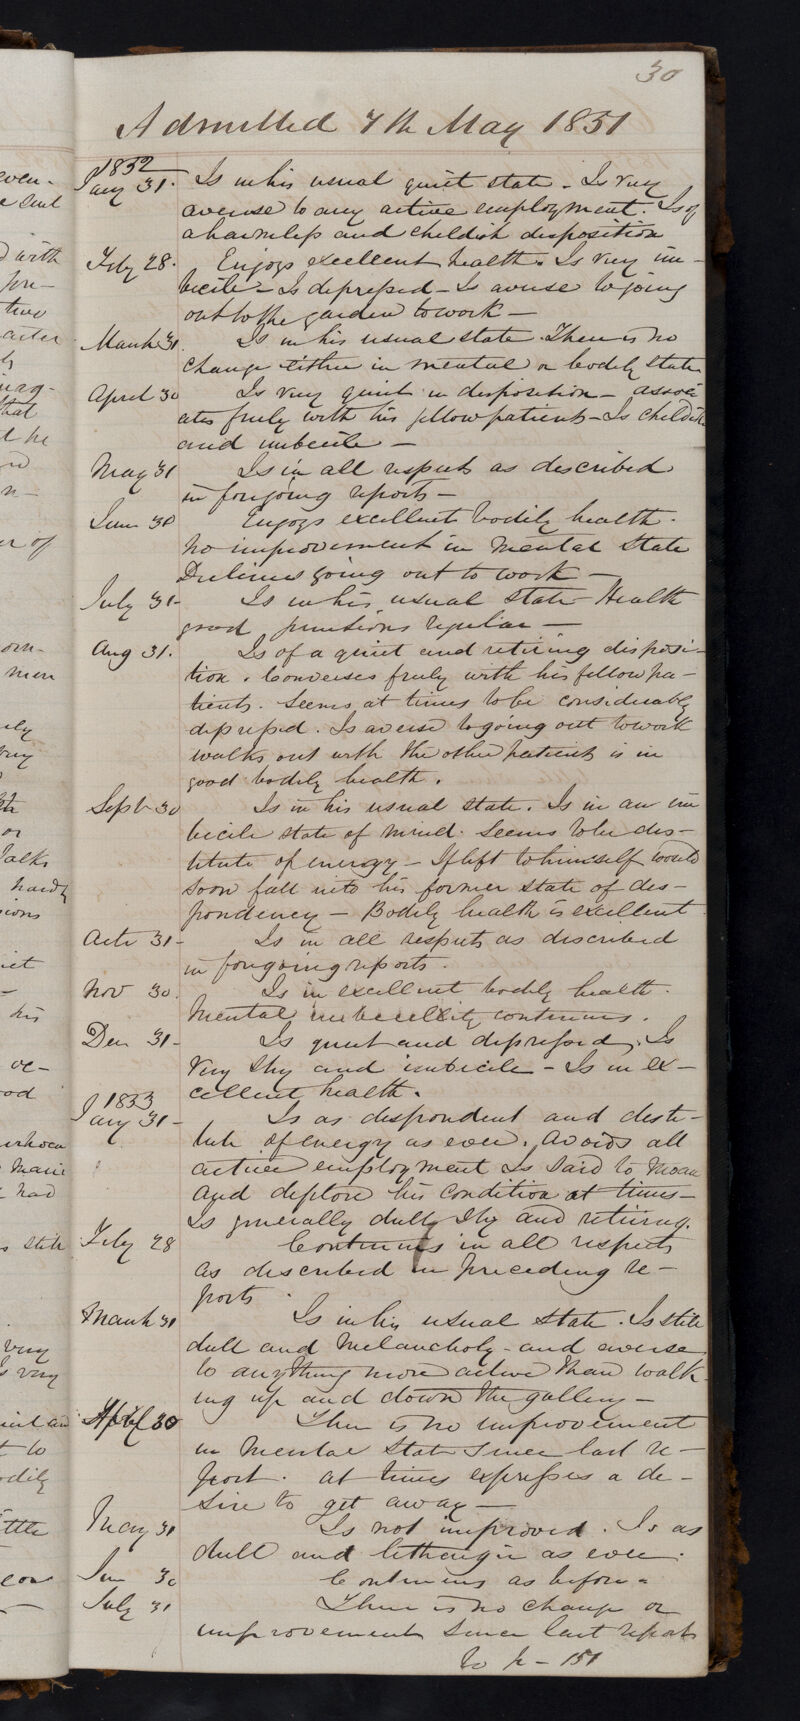 30
Admitted 7th May 1851
1852
Jany 31. Is in his usual quiet state - Is very
averse to any active employment. Is of
a harmless and childish disposition
Feby 28. Enjoys excellent health. Is very im-
becile - Is depressed - Is averse to going
out to the garden to work -
March 31 Is in his usual state. There is no
change either in mental or bodily state
April 30 Is very quiet in disposition - associ
ates freely with his fellow patients - Is childish
and imbecile -
May 31 Is in all respects as described
in forgoing reports -
June 30 Enjoys excellent bodily health.
No improvement in mental state
Declines going out to work -
July 31 - Is in his usual state - Health
good functions regular -
Aug 31. Is of a quiet and retiring disposi-
tion. Converses freely with his fellow pa-
tients. Seems at times to be considerably
depressed. Is averse to going out to work
walks out with the other patients is in
good bodily health.
Sept 30 Is in his usual state. Is in an im
becile state of mind. Seems to be des-
titute of energy - If left to himself would
soon fall into his former state of des-
pondency - Bodily health is excellent.
Octr 31 - Is in all respects as described
in forgoing reports.
Nov 30. Is in excellent bodily health.
Mental imbecility continues.
Dec 31 - Is quiet and depressed. Is
very shy and imbecile - Is in ex-
cellent health.
1853
Jany 31 - Is as despondent and desti-
tute of energy as ever. Avoids all
active employment Is said to moan
and deplore his condition at times -
Is generally dull, shy and retiring.
Feby 28 Continues in all respects
as described in preceding re-
ports.
March 31 Is in his usual state. Is still
dull and melancholy - and averse
to anything more active than walk-
ing up and down the gallery -
April 30 There is no improvement
in mental state since last re-
port. at times expresses a de-
sire to get away -
May 31 Is not improved. Is as
dull and lethargic as ever.
June 30 Continues as before.
July 31 There is no change or
improvement since last report
To p - 151